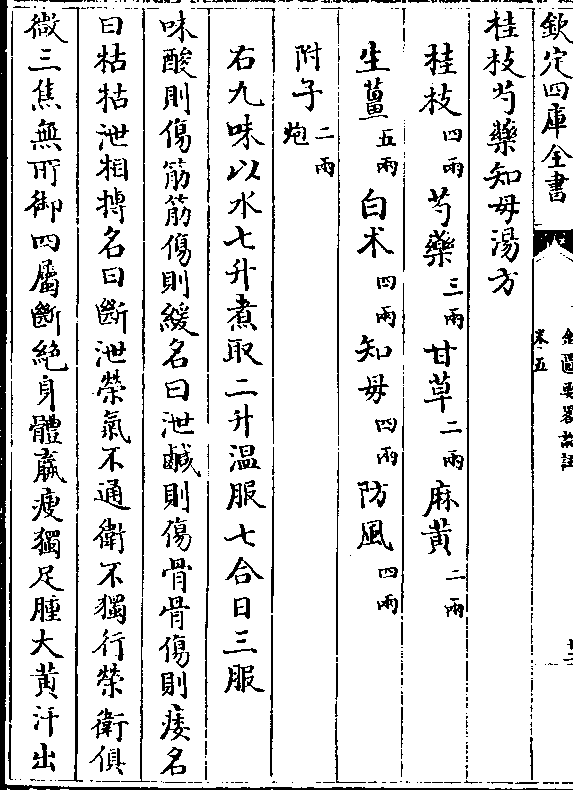 欽定四庫全書
金匱要畧論註
卷五
桂枝芍藥知母湯方
桂枝四兩 芍藥三兩 甘草二兩 麻黄二兩
生薑五兩 白术四兩 知母四兩 防風四兩
附子二兩炮
右九味以水七升煮取二升温服七合日三服
味酸則傷筋筋傷則緩名曰泄鹹則傷骨骨傷則痿名
曰枯枯泄相摶名曰斷泄榮氣不通衛不獨行榮衛俱
微三焦無所御四屬斷絶身體羸瘦獨足腫大黄汗出